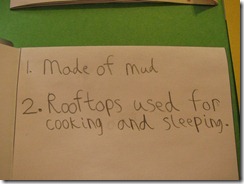 1. Made of mud
2. Rooftops used for
cooking and sleeping.